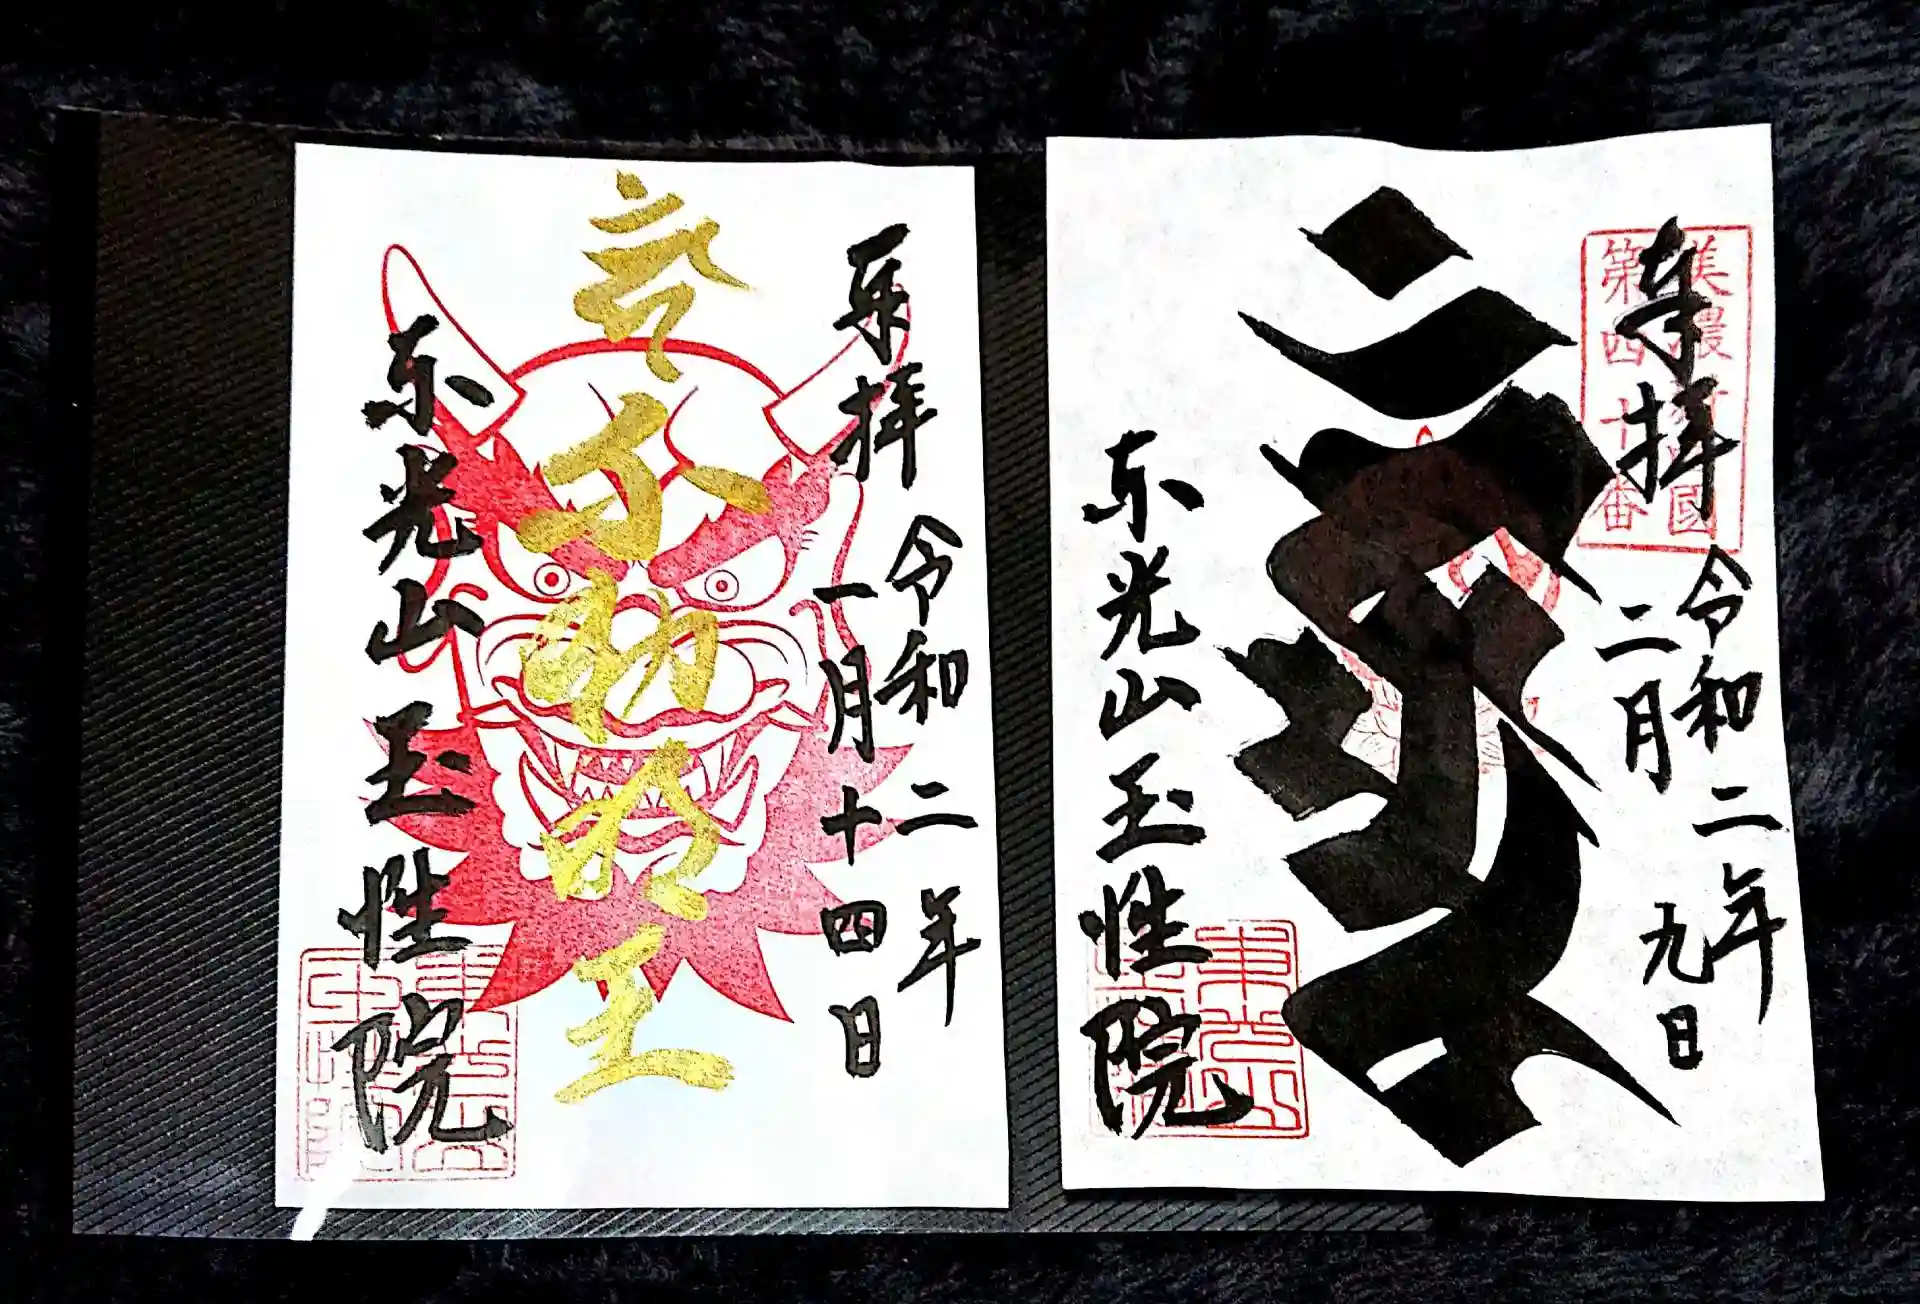 奉拝
令和二年
一月十四日
不動明王
東光山玉性院
奉拝
美濃西國
第四十番
令和二年
二月九日
東光山玉性院